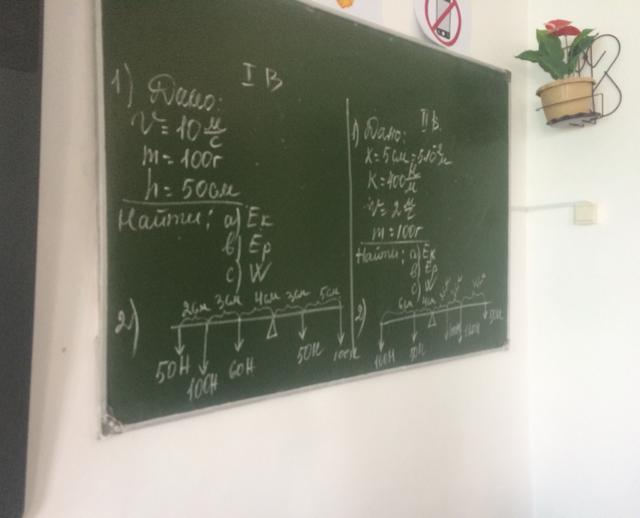 I В
1) Дано:
V = 10 м/с
m = 100г
h = 50см
Найти: а) Eк
в) Ep
с) W
2)
2см 3см 4см 3см 5см
50Н 100Н 60Н 50Н 100Н
II В.
1) Дано:
x = 5см = 5·10⁻²м
K = 100 Н/м
v = 2 м/с
m = 100г
Найти: а) Eк
в) Ep
с) W
2)
6см 4см
50Н